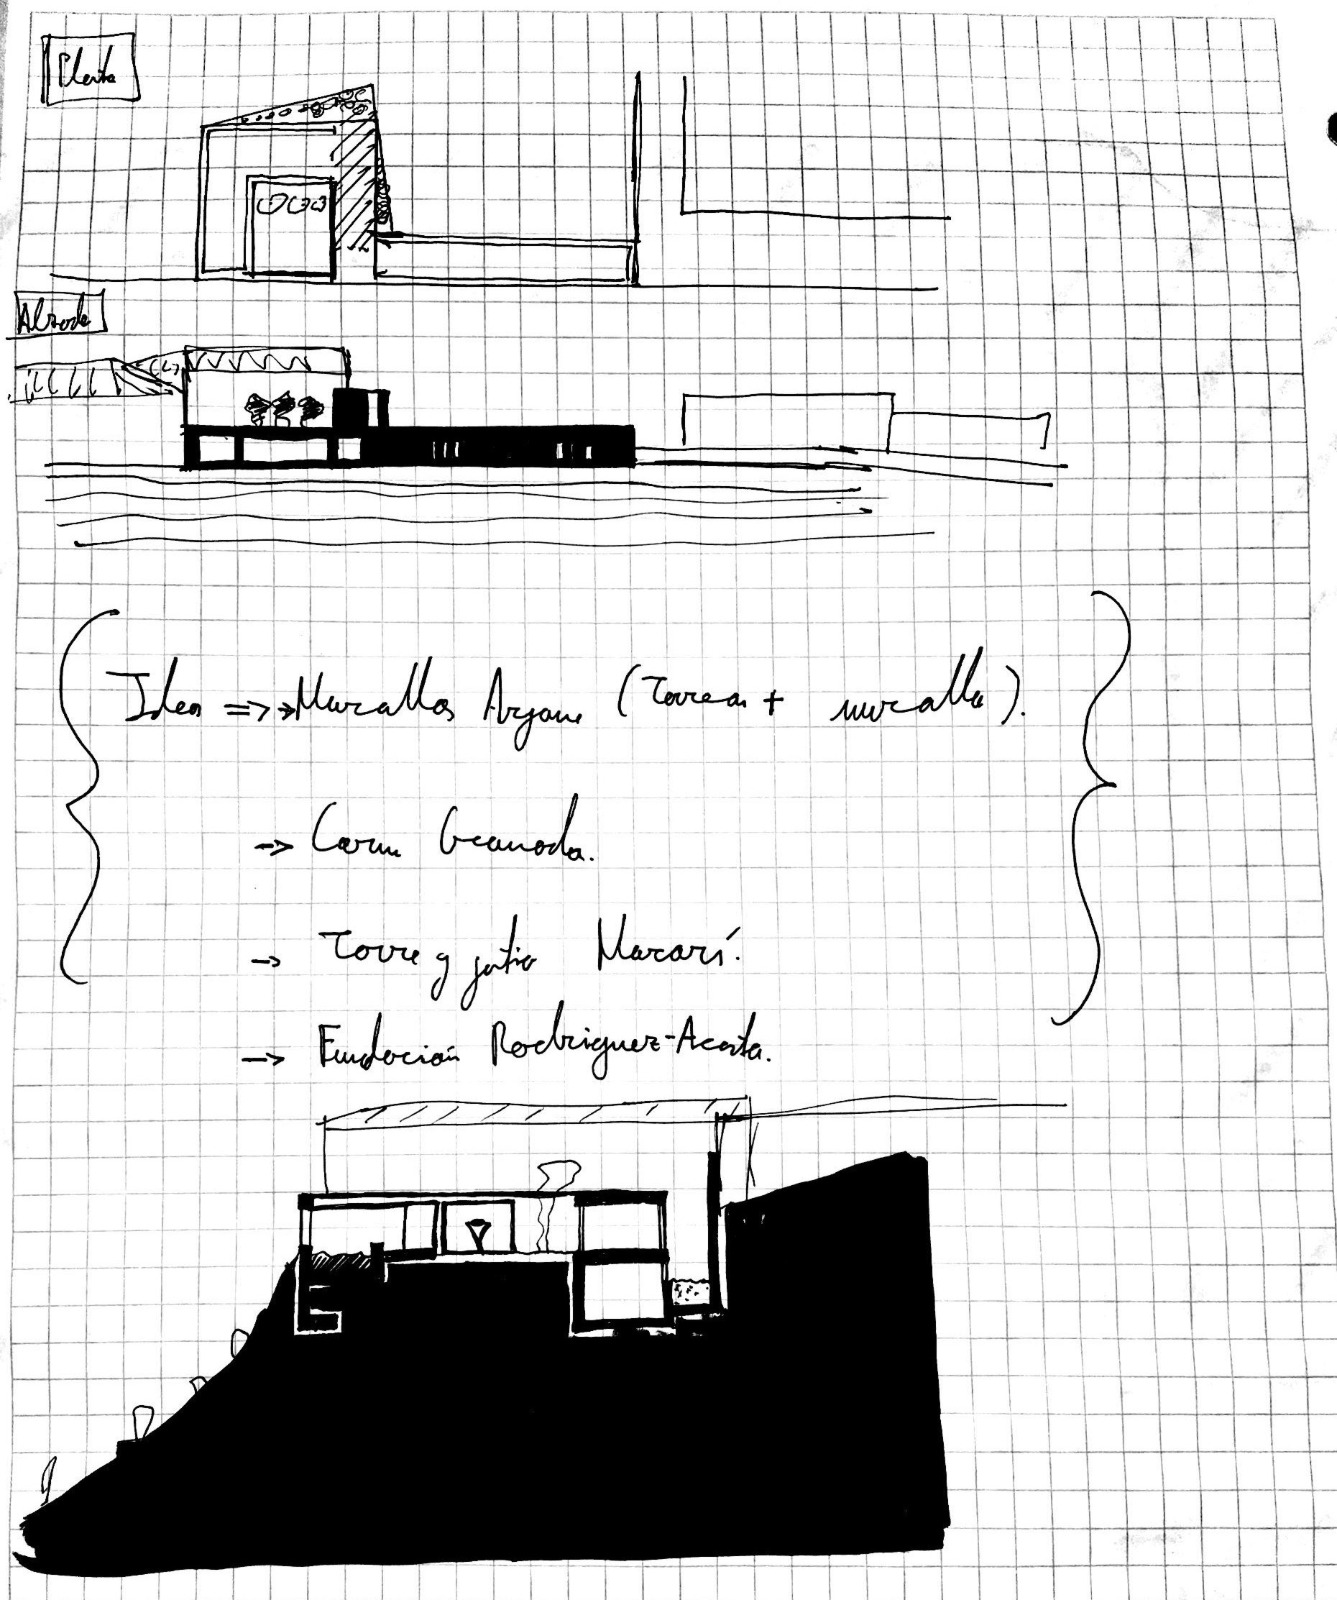 Planta
Alzado
Idea => → Murallas (Torres + muralla).
→ Carmen Granada.
→ Torre y patio
→ Fundación Rodríguez-Acosta.